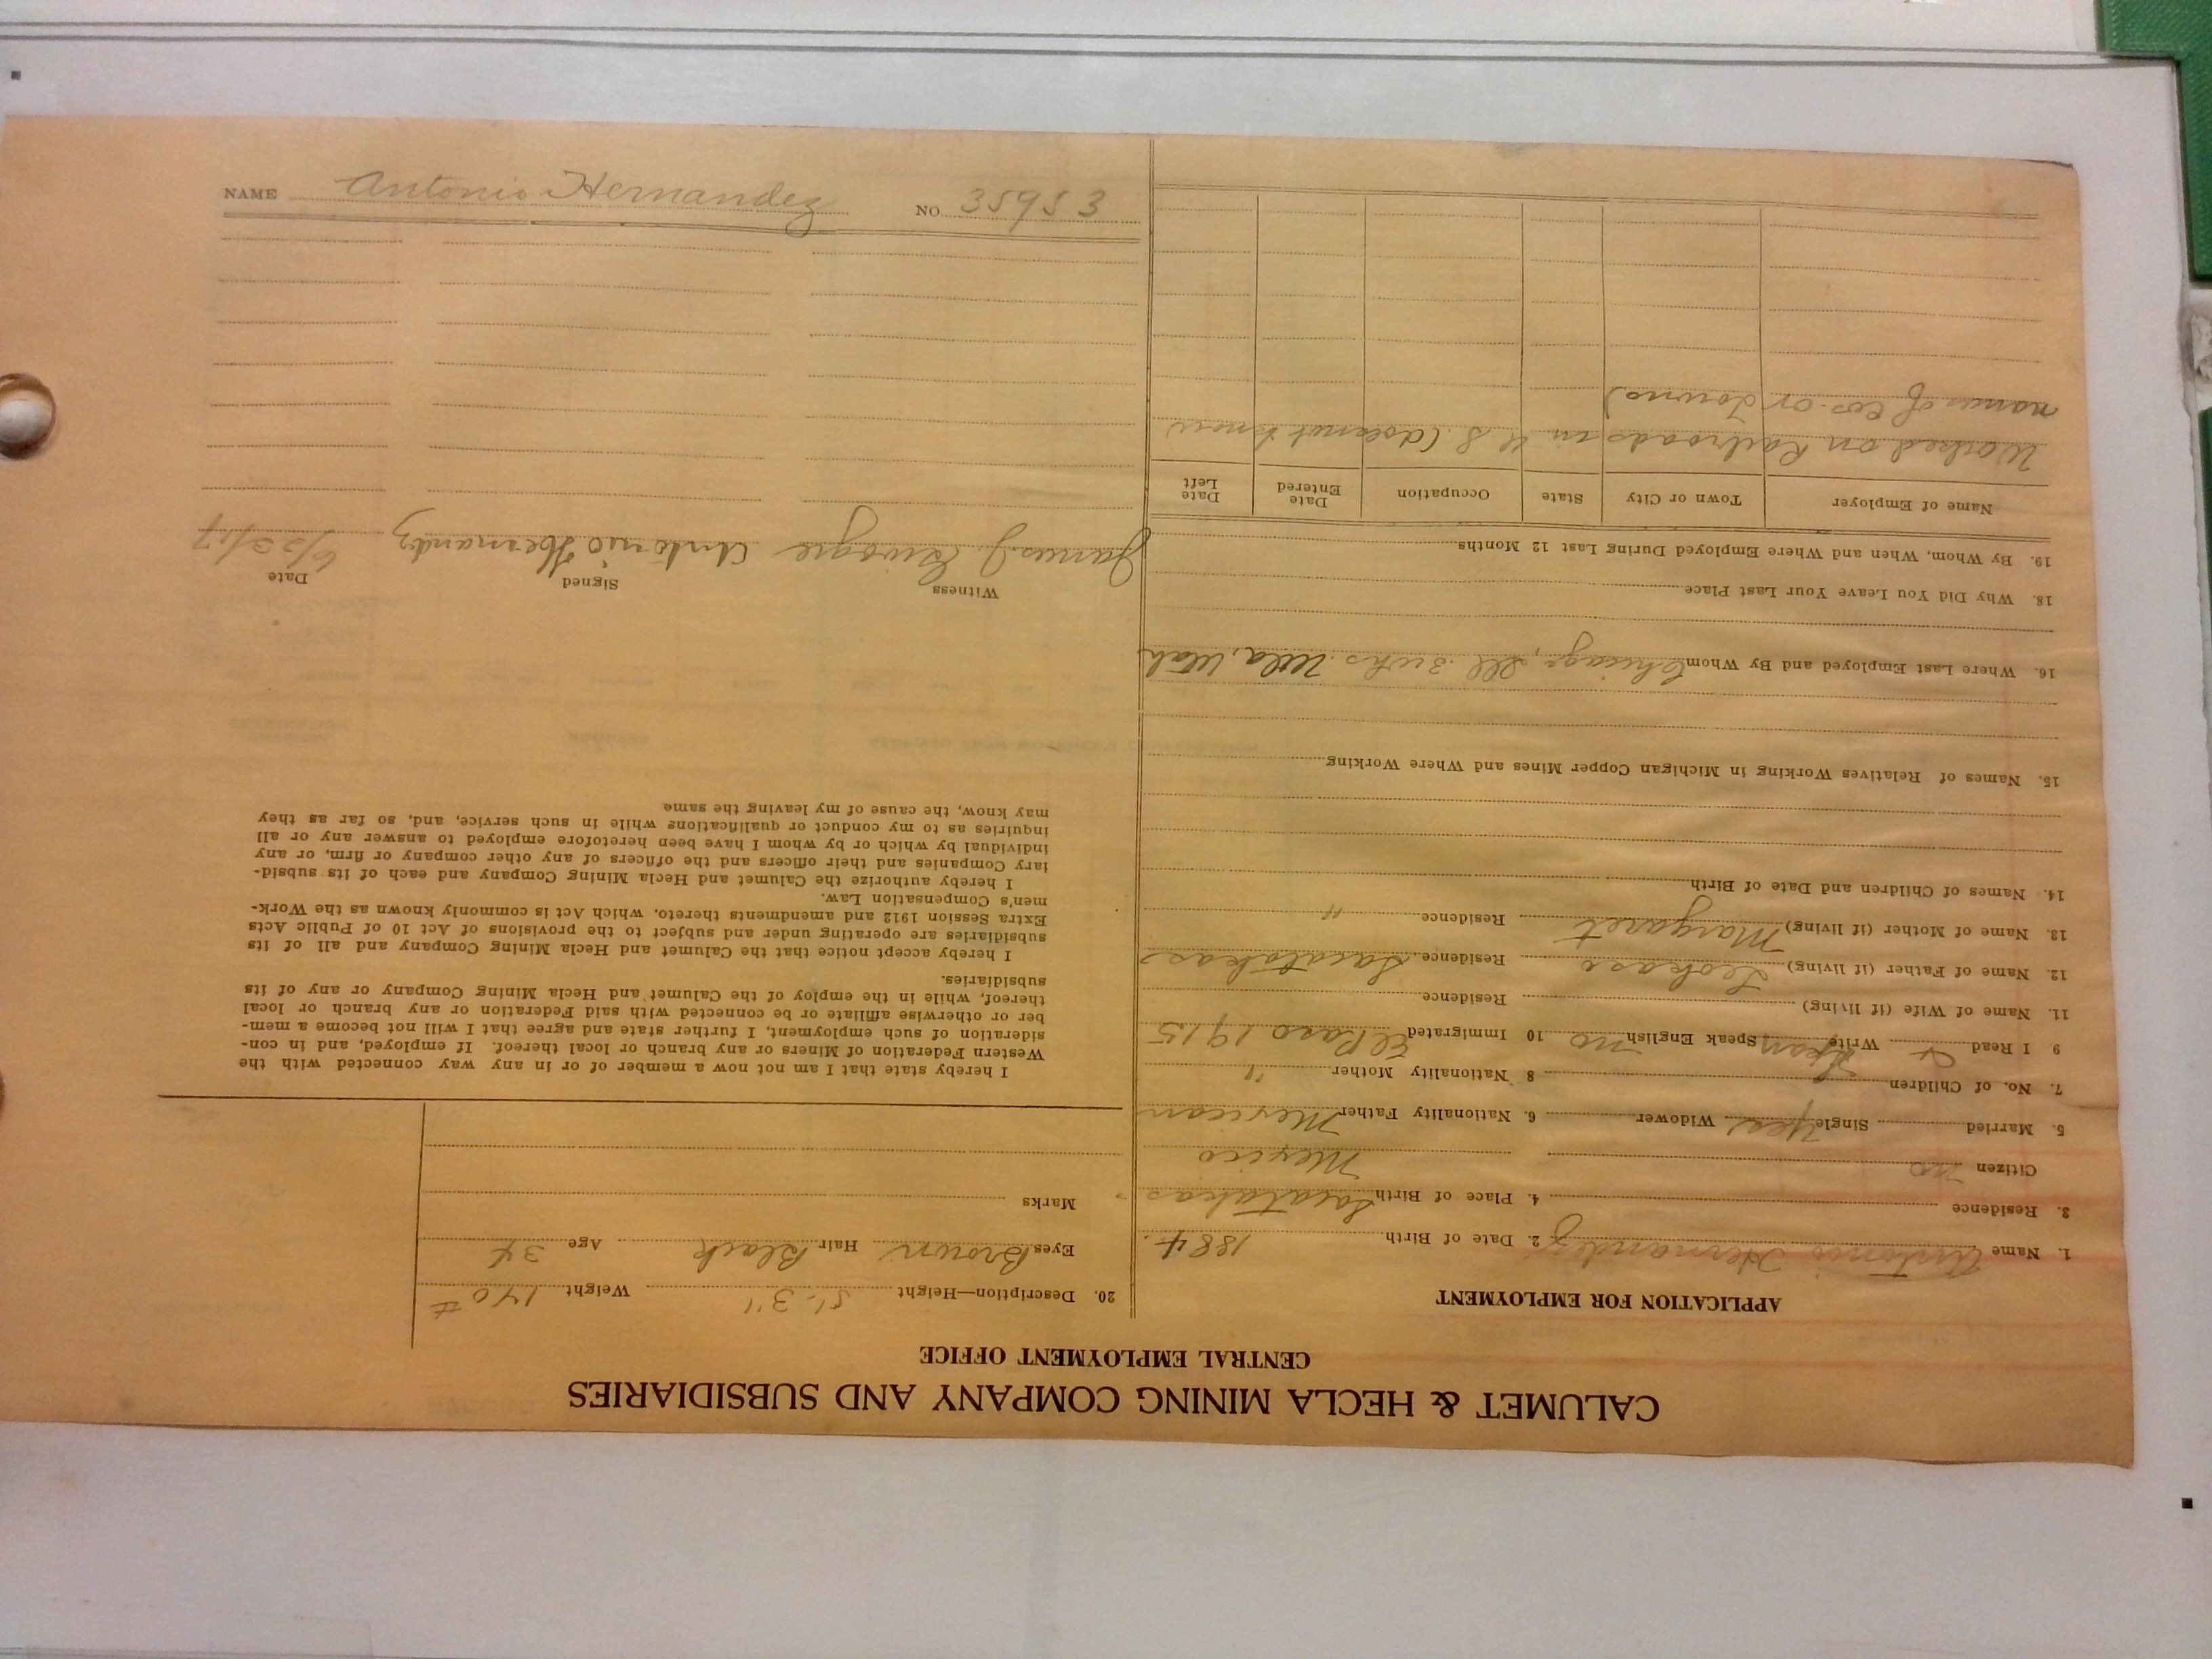 CALUMET & HECLA MINING COMPANY AND SUBSIDIARIES
CENTRAL EMPLOYMENT OFFICE
APPLICATION FOR EMPLOYMENT
1. Name Antonio Hernandez 2. Date of Birth 1884
3. Residence 4. Place of Birth Sacatakas
Citizen no Mexico
5. Married Single Yes Widower 6. Nationality Father Mexican
7. No. of Children 8 Nationality Mother "
9 I Read Write Speak English no 10 Immigrated El Paso 1915
11. Name of Wife (if living) Residence
12. Name of Father (if living) Residence Sacatakas
13. Name of Mother (if living) Margaret Residence "
14. Names of Children and Date of Birth
15. Names of Relatives Working in Michigan Copper Mines and Where Working
16. Where Last Employed and By Whom Chicago, Ill. Utah
18. Why Did You Leave Your Last Place
19. By Whom, When and Where Employed During Last 12 Months
Name of Employer Town or City State Occupation Date Entered Date Left
Worked on Railroads in U S. (does not know
names of cos. or towns)
20. Description—Height 5'-3" Weight 140 #
Eyes Brown Hair Black Age 34
Marks
I hereby state that I am not now a member of or in any way connected with the
Western Federation of Miners or any branch or local thereof. If employed, and in con-
sideration of such employment, I further state and agree that I will not become a mem-
ber or otherwise affiliate or be connected with said Federation or any branch or local
thereof, while in the employ of the Calumet and Hecla Mining Company or any of its
subsidiaries.
I hereby accept notice that the Calumet and Hecla Mining Company and all of its
subsidiaries are operating under and subject to the provisions of Act 10 of Public Acts
Extra Session 1912 and amendments thereto, which Act is commonly known as the Work-
men's Compensation Law.
I hereby authorize the Calumet and Hecla Mining Company and each of its subsid-
iary Companies and their officers and the officers of any other company or firm, or any
individual by which or by whom I have been heretofore employed to answer any or all
inquiries as to my conduct or qualifications while in such service, and, so far as they
may know, the cause of my leaving the same
Witness Signed Date
James J. Antonio Hernandz
NAME Antonio Hernandez NO. 35953